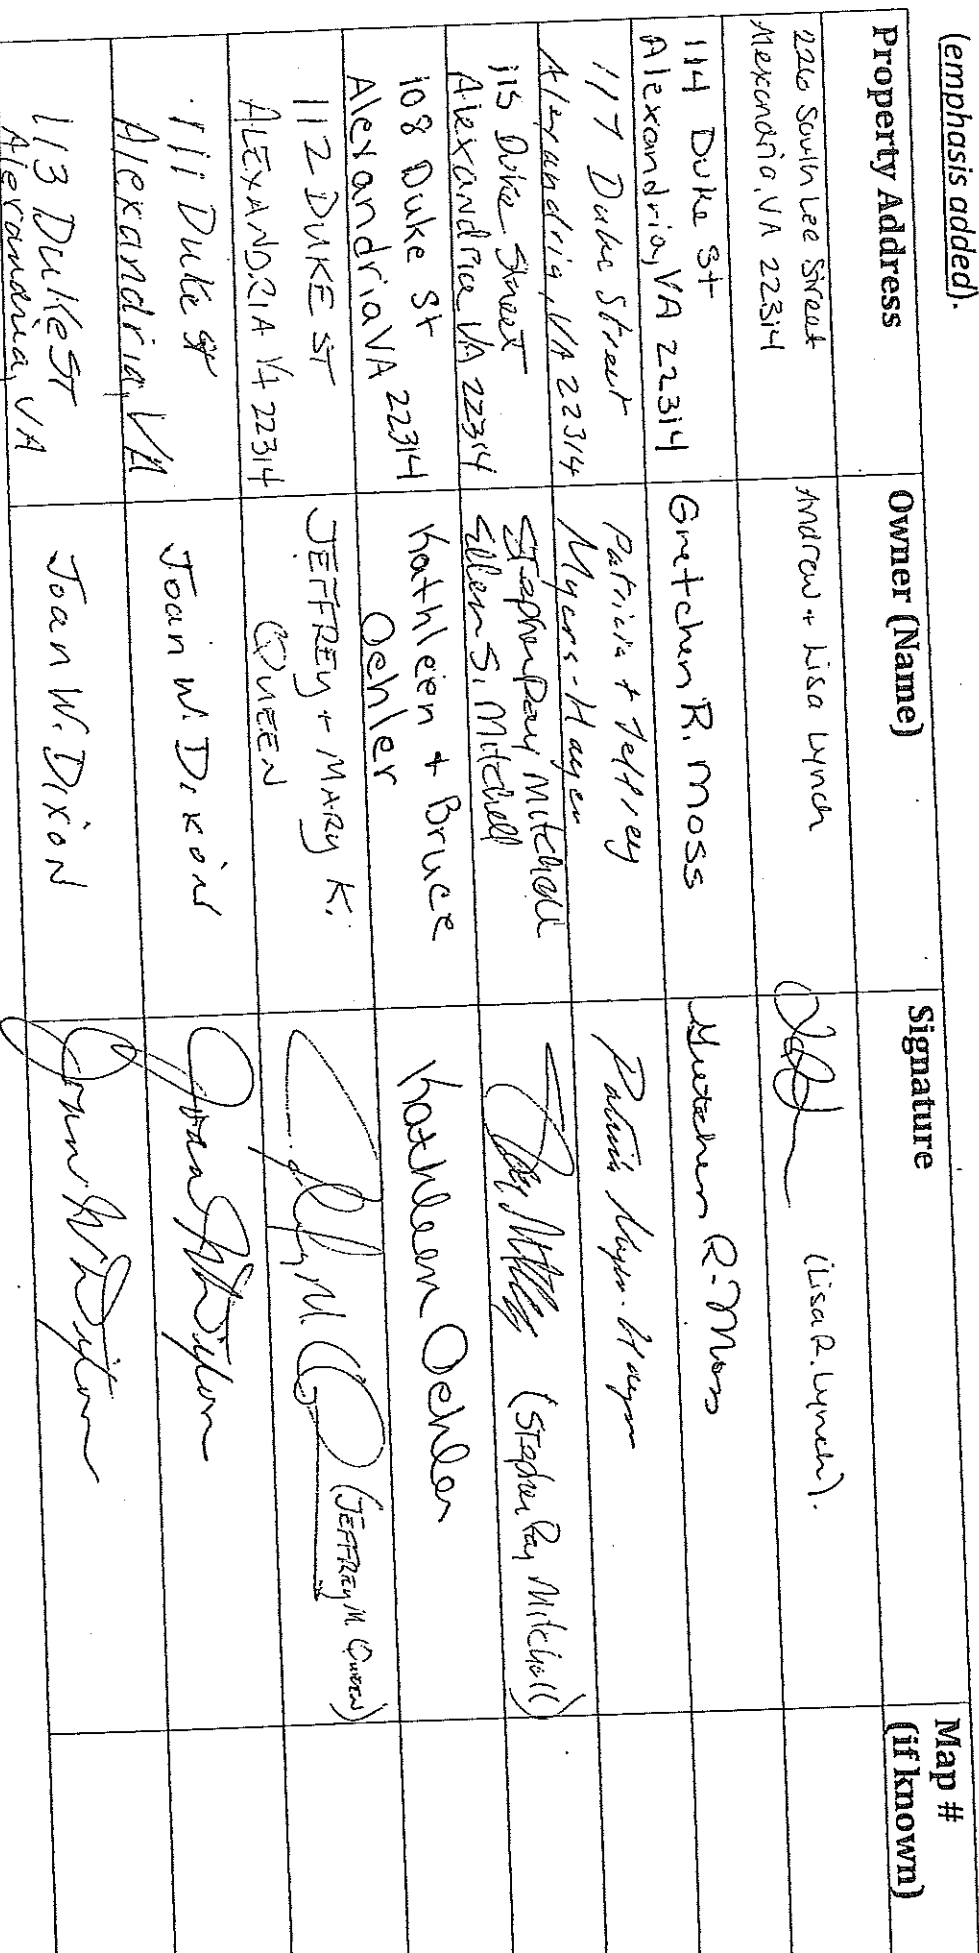 (emphasis added).
Property Address Owner (Name) Signature Map #
(if known)
226 South Lee Street
Alexandria, VA 22314
Andrew + Lisa Lynch
(Lisa R. Lynch).
114 Duke St
Alexandria, VA 22314
Gretchen R. Moss
Gretchen R. Moss
117 Duke Street
Alexandria, VA 22314
Patricia + Jeffrey
Myers-Hayer
Patricia Myers-Hayer
115 Duke Street
Alexandria VA 22314
Stephen Ray Mitchell
Ellen S. Mitchell
(Stephen Ray Mitchell)
108 Duke St
Alexandria VA 22314
Kathleen + Bruce
Oehler
Kathleen Oehler
112 DUKE ST
ALEXANDRIA VA 22314
JEFFREY + MARY K.
QUEEN
(JEFFREY M QUEEN)
111 Duke St
Alexandria, VA
Joan W. Dixon
Joan W Dixon
113 Duke ST
Alexandria, VA
Joan W. Dixon
Joan W Dixon